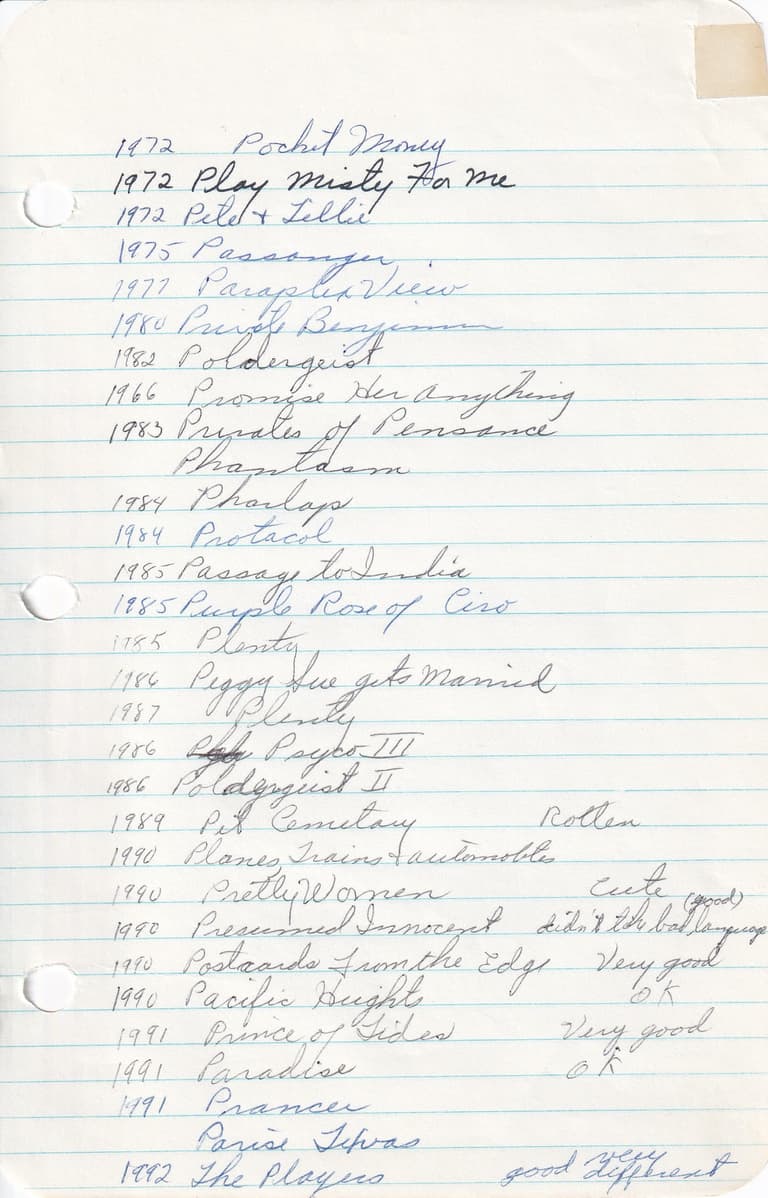 1972 Pocket Money
1972 Play Misty For Me
1972 Pete + Tillie
1975 Passanger
1977 Paraplex View
1980 Private Benjimin
1982 Poldergeist
1966 Promise Her Anything
1983 Pirates of Pensance
Phantasm
1984 Pharlap
1984 Protacol
1985 Passage to India
1985 Purple Rose of Ciro
1985 Plenty
1986 Peggy Sue gets Married
1987 Plenty
1986 Psyco III
1986 Poldergeist II
1989 Pet Cemetary Rotten
1990 Planes, Trains + automobiles
1990 Pretty Women Cute
1990 Presumed Innocent (good) didn't like bad language
1990 Postcards From the Edge Very good
1990 Pacific Heights OK
1991 Prince of Tides Very good
1991 Paradise OK
1991 Prancer
Parise Texas
1992 The Players good very different